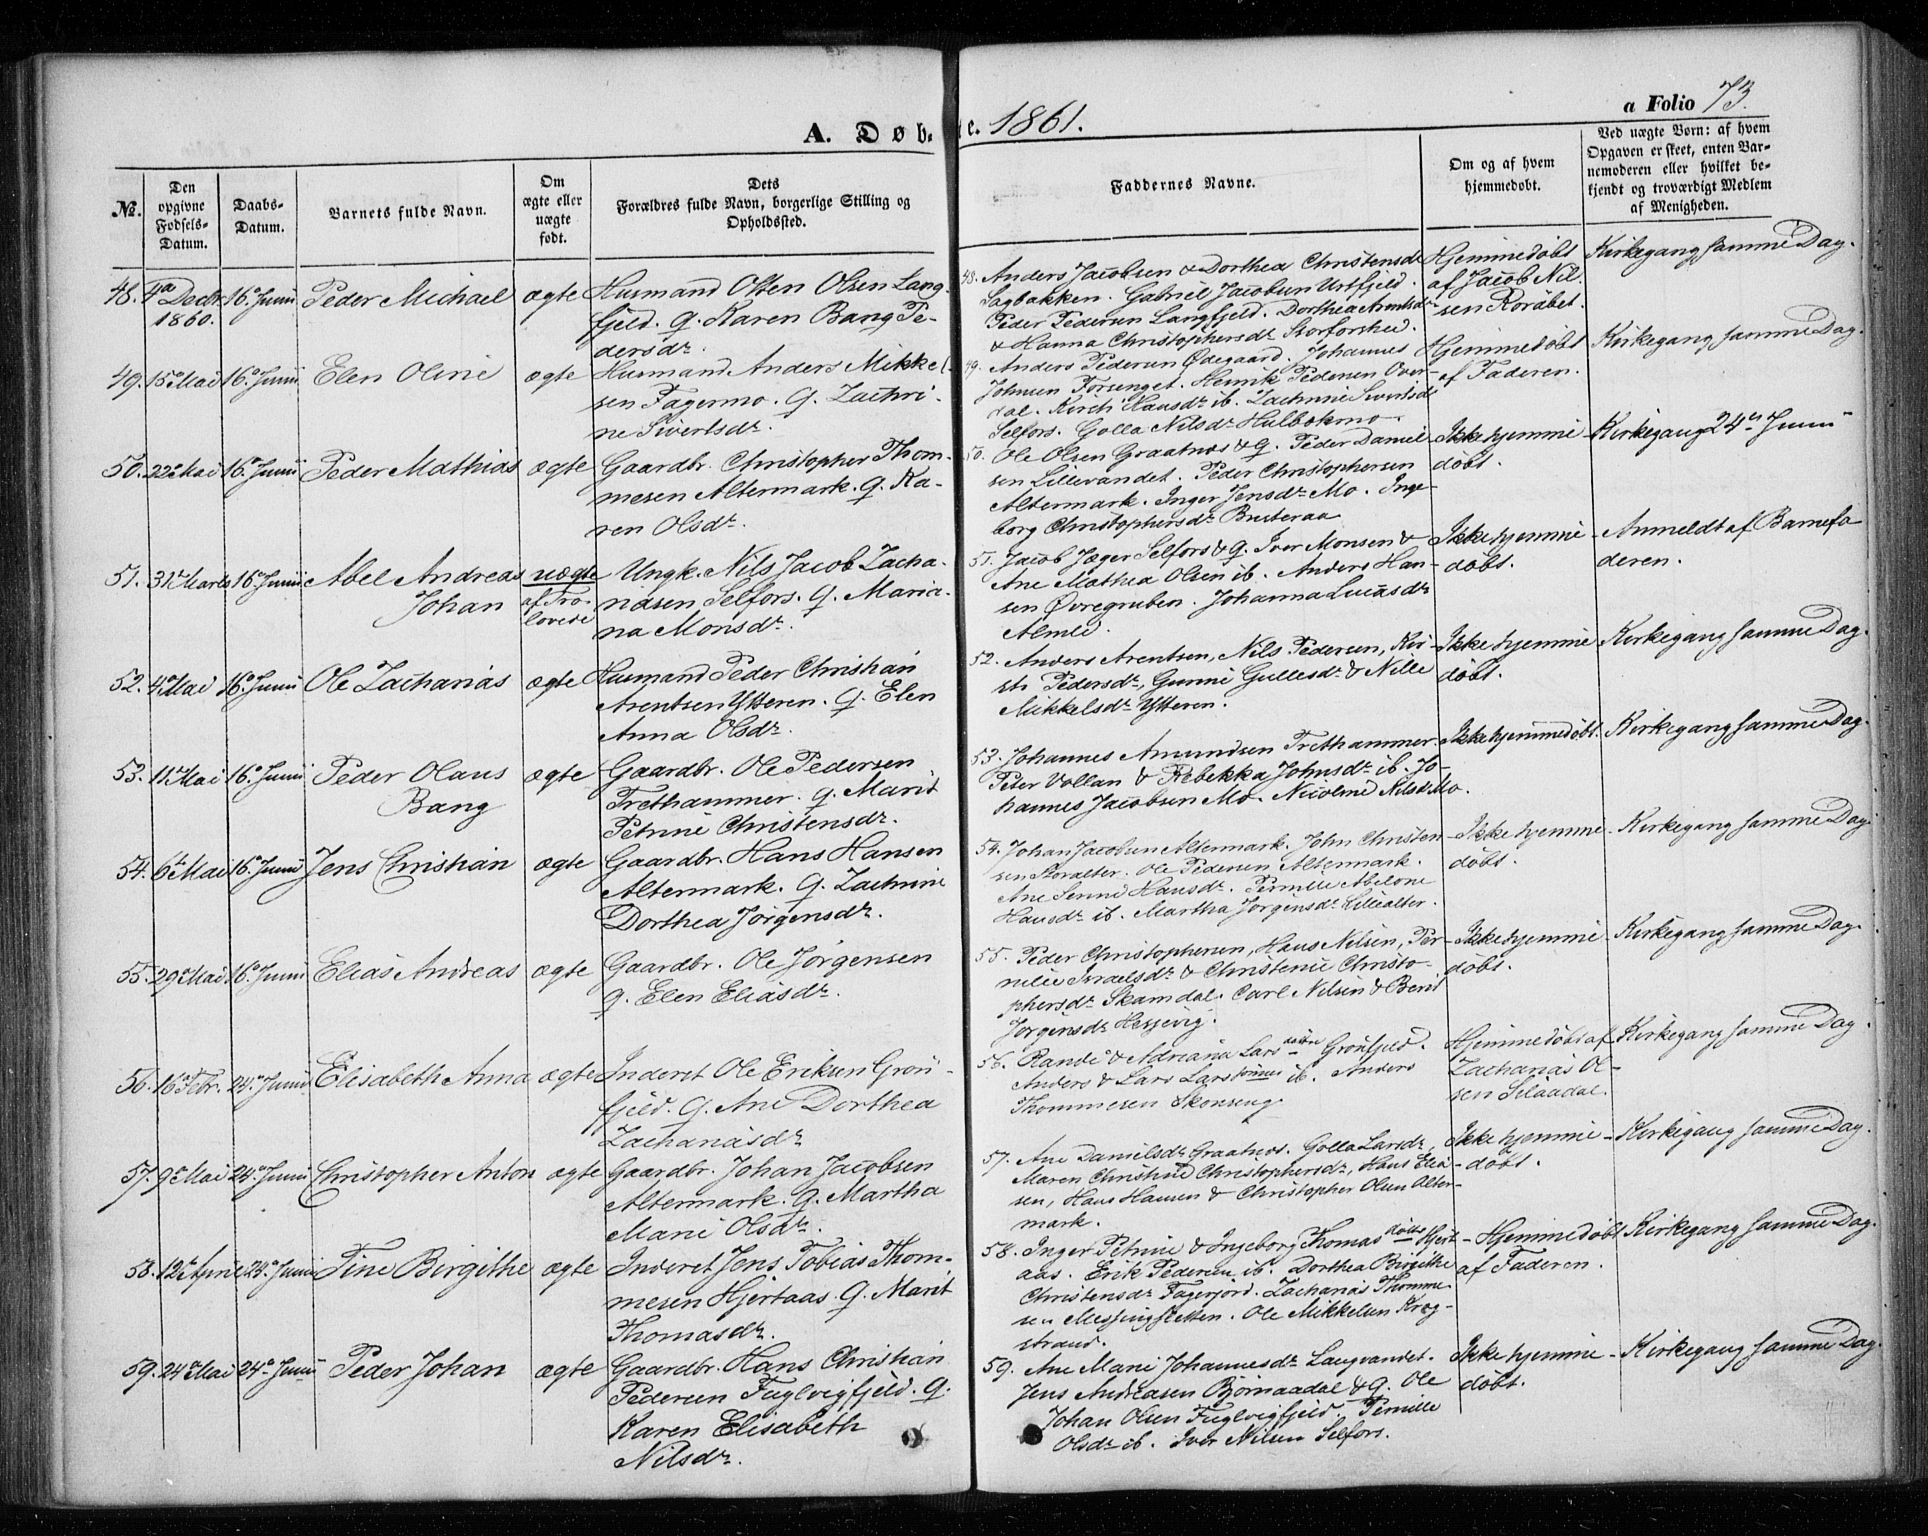 A. Døb-te. 1861.
a Folio 73.
No.
Den opgivne Fødsels-Datum.
Daabs-Datum.
Barnets fulde Navn.
Om ægte eller uægte født.
Dets Forældres fulde Navn, borgerlige Stilling og Opholdssted.
Faddernes Navne.
Om og af hvem hjemmedøbt.
Ved uægte Børn: af hvem Opgaven er skeet, enten Barnemoderen eller hvilket bekjendt og troværdigt Medlem af Menigheden.
48. 4de Decbr. 1860. 16de Junii Peder Michael ægte Husmand Olsen Lang-
fjeld. g. Karen Bang Pe-
dersdr.
48. Anders Jacobsen & Dorthea Christensdr
Lagbakken. Gabriel Jacobsen Urtfjeld.
Peder Pedersen Langfjeld. Dorthea Arntsdr
& Hanna Christophersdr Storforshei.
Hjemmedøbt
af Jacob Nil-
sen Roråbet.
Kirkegang samme Dag.
49. 15de Mai 16de Junii Elen Oline ægte Husmand Anders Mikkel-
sen Fagermo. g. Zachri-
ne Sivertsdr.
49. Anders Pedersen Ødegaard. Johannes
Johnsen Forsenget. Henrik Pedersen Over-
dal. Kirsti Hansdr ib. Zachrine Sivertsdr
Selfors. Golla Nilsdr Hulbekmo.
Hjemmedøbt
af Faderen.
Kirkegang samme Dag.
50. 22de Mai 16de Junii Peder Mathias ægte Gaardbr. Christopher Thom-
mesen Altermark. g. Ka-
ren Olsdr.
50. Ole Olsen Graatnes & g. Peder Daniel-
sen Lillevandet. Peder Christophersen
Altermark. Inger Jensdr Mo. Inge-
borg Christophersdr Busteraa
Ikke hjemme-
døbt.
Kirkegang 24de Junii
51. 31te Marts 16de Junii Abel Andreas
Johan
uægte
af Tro-
lovede
Ungk. Nils Jacob Zacha-
riasen Selfors. g. Maria-
na Monsdr.
51. Jacob Jæger Selfors & g. Iver Monsen &
Ane Mathea Olsen ib. Anders Han-
sen Øvregruben. Johanna Lucasdr
Almli.
Ikke hjemme-
døbt.
Anmeldt af Barnefa
deren.
52. 4de Mai 16de Junii Ole Zacharias ægte Husmand Peder Christian
Arentsen Ytteren. g. Elen
Anna Olsdr.
52. Anders Arentsen, Nils Pedersen, Kir-
sti Pedersdr, Gurine Gullesdr & Nille
Mikkelsdr Ytteren.
Ikke hjemme
døbt.
Kirkegang samme Dag.
53. 11te Mai 16de Junii Peder Olaus
Bang
ægte Gaardbr. Ole Pedersen
Trethammer. g. Marit
Petrine Christensdr.
53. Johannes Amundsen Trethammer.
Peter Vollan & Rebekka Johnsdr ib. Jo-
hannes Jacobsen Mo. Nicoline Nilsd Mo.
Ikke hjemmedøbt.
Kirkegang samme Dag.
54. 6te Mai 16de Junii Jens Christian ægte Gaardbr. Hans Hansen
Altermark. g. Zachrine
Dorthea Jörgensdr.
54. Johan Jacobsen Altermark. John Christen-
sen Storalter. Ole Pedersen Altermark.
Ane Serine Hansdr. Pernille Abelone
Hansdr ib. Martha Jörgensdr Lillealter.
Ikke hjemme-
døbt.
Kirkegang samme Dag.
55. 29de Mai 16de Junii Elias Andreas ægte Gaardbr. Ole Jörgensen
g. Elen Eliasdr.
55. Peder Christophersen, Hans Nilsen, Per-
nille Israelsdr & Christense Christo-
phersdr Skamdal. Carl Nilsen & Berit
Jörgensdr Hessevig.
Ikke hjemme
døbt.
Kirkegang samme Dag.
56. 16de Febr. 24de Junii Elisabeth Anna ægte Inderst Ole Eriksen Grøn-
fjeld. g. Ane Dorthea
Zachariasdr
56. Randi & Adriana Larsdøttre Grønfjeld.
Anders & Lars Larssønner ib. Anders
Thommesen Skonseng.
Hjemmedøbt af
Zacharias Ol-
sen Selaadal.
Kirkegang samme Dag.
57. 9de Mai 24de Junii Christopher Anton ægte Gaardbr. Johan Jacobsen
Altermark. g. Martha
Marie Olsdr.
57. Ane Danielsdr Graatnes. Golla Larsdr,
Maren Christine Christophersdr, Hans Elia-
sen, Hans Hansen & Christopher Olsen Alter-
mark.
Ikke hjemme-
døbt.
Kirkegang samme Dag.
58. 12te April 24de Junii Tine Birgithe ægte Inderst Jens Tobias Thom-
mesen Hjertaas. g. Marit
Thomasdr.
58. Inger Petrine & Ingeborg Thomasdøttre Hjert-
aas. Erik Pedersen ib. Dorthea Birgithe
Christensdr Fagerjord. Zacharias Thomme-
sen Messingsletten. Ole Mikkelsen Kræg-
strand.
Hjemmedøbt
af Faderen.
Kirkegang samme Dag.
59. 24de Mai 24de Junii Peder Johan ægte Gaardbr. Hans Christian
Pedersen Fuglvigfjeld. g.
Karen Elisabeth
Nilsdr.
59. Ane Marie Johannesdr Langvandet.
Jens Andreasen Bjørnaadal & g. Ole
Johan Olsen Fuglvigfjeld. Pernille
Olsdr ib. Iver Nilsen Selfors.
Ikke hjemme-
døbt.
Kirkegang samme Dag.